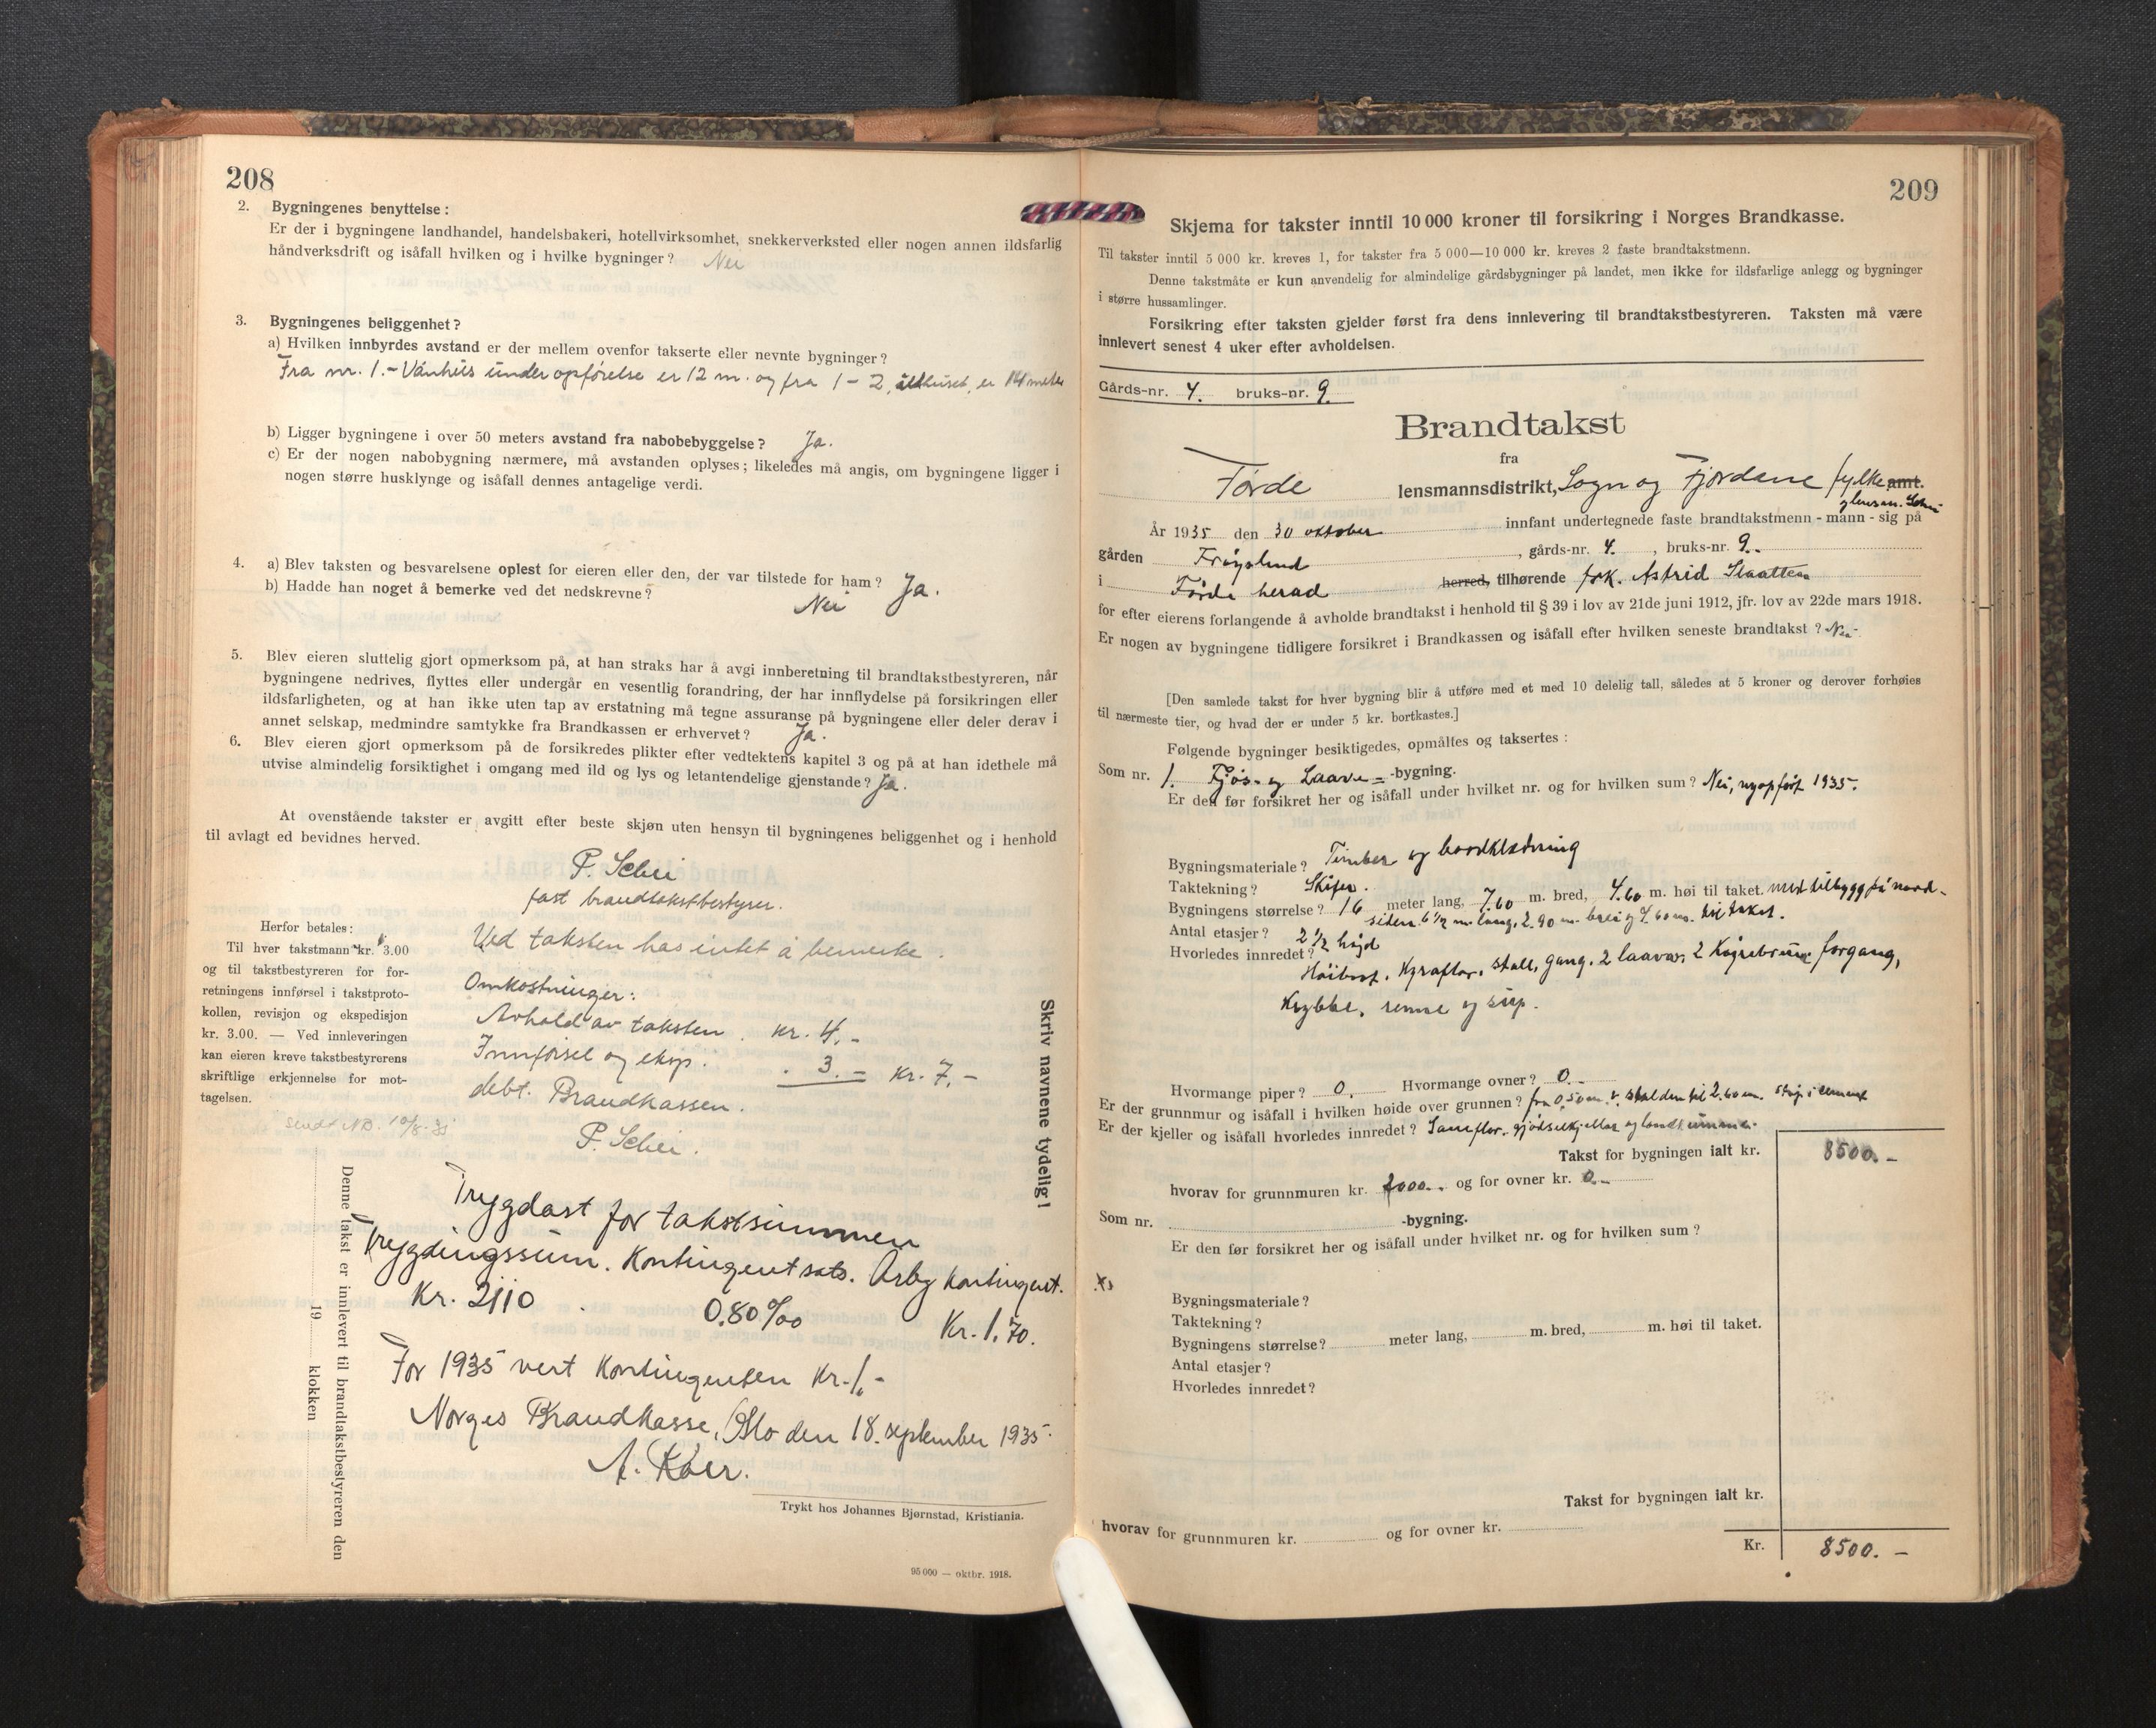 208
2. Bygningenes benyttelse:
Er der i bygningene landhandel, handelsbakeri, hotellvirksomhet, snekkerverksted eller nogen annen ildsfarlig
håndverksdrift og isåfall hvilken og i hvilke bygninger? Nei
3. Bygningenes beliggenhet?
a) Hvilken innbyrdes avstand er der mellem ovenfor takserte eller nevnte bygninger?
Fra nr. 1.- Vånhus under opførelse er 12 m. og fra 1 - 2, uthuset, er 14 meter
b) Ligger bygningene i over 50 meters avstand fra nabobebyggelse? Ja.
c) Er der nogen nabobygning nærmere, må avstanden oplyses; likeledes må angis, om bygningene ligger i
nogen større husklynge og isåfall dennes antagelige verdi.
4. a) Blev taksten og besvarelsene oplest for eieren eller den, der var tilstede for ham? Ja.
b) Hadde han noget å bemerke ved det nedskrevne? Nei
5. Blev eieren sluttelig gjort opmerksom på, at han straks har å avgi innberetning til brandtakstbestyreren, når
bygningene nedrives, flyttes eller undergår en vesentlig forandring, der har innflydelse på forsikringen eller
ildsfarligheten, og at han ikke uten tap av erstatning må tegne assuranse på bygningene eller deler derav i
annet selskap, medmindre samtykke fra Brandkassen er erhvervet? Ja.
6. Blev eieren gjort opmerksom på de forsikredes plikter efter vedtektens kapitel 3 og på at han idethele må
utvise almindelig forsiktighet i omgang med ild og lys og letantendelige gjenstande? Ja.
At ovenstående takster er avgitt efter beste skjøn uten hensyn til bygningenes beliggenhet og i henhold
til avlagt ed bevidnes herved.
P. Schei
fast brandtakstbestyrer.
Herfor betales:
Til hver takstmann kr. 3.00
og til takstbestyreren for for-
retningens innførsel i takstproto-
kollen, revisjon og ekspedisjon
kr. 3.00. — Ved innleveringen
kan eieren kreve takstbestyrerens
skriftlige erkjennelse for mot-
tagelsen.
Ved taksten has intet å bemerke.
Omkostninger:
Avhold av taksten . kr. 4.-
Innførsel og eksp. . 3.- kr. 7.-
debt. Brandkassen.
sendt NB. 10/8-35
P. Schei.
Skriv navnene tydelig!
Denne takst er innlevert til brandtakstbestyreren den
19 klokken
Trygdast for takstsummen
Trygdingssum. Kontingentsats. Årleg kontingent.
Kr. 2110 0.80‰ Kr. 1.70.
For 1935 vert kontingenten Kr. 1.-
Norges Brandkasse, Oslo den 18. september 1935.
A. Kiær.
Trykt hos Johannes Bjørnstad, Kristiania.
95 000 — oktbr. 1918.
209
Skjema for takster inntil 10 000 kroner til forsikring i Norges Brandkasse.
Til takster inntil 5 000 kr. kreves 1, for takster fra 5 000—10 000 kr. kreves 2 faste brandtakstmenn.
Denne takstmåte er kun anvendelig for almindelige gårdsbygninger på landet, men ikke for ildsfarlige anlegg og bygninger
i større hussamlinger.
Forsikring efter taksten gjelder først fra dens innlevering til brandtakstbestyreren. Taksten må være
innlevert senest 4 uker efter avholdelsen.
Gårds-nr. 4. bruks-nr. 9.
Brandtakst
fra
Førde lensmannsdistrikt, Sogn og Fjordane fylke amt.
og lensm. Schei
År 1935 den 30 oktober innfant undertegnede faste brandtakstmenn - mann - sig på
gården Frøyslund, gårds-nr. 4., bruks-nr. 9.
i Førde herad herred, tilhørende frk. Astrid Slaatten
for efter eierens forlangende å avholde brandtakst i henhold til § 39 i lov av 21de juni 1912, jfr. lov av 22de mars 1918.
Er nogen av bygningene tidligere forsikret i Brandkassen og isåfall efter hvilken seneste brandtakst? Nei.
[Den samlede takst for hver bygning blir å utføre med et med 10 delelig tall, således at 5 kroner og derover forhøies
til nærmeste tier, og hvad der er under 5 kr. bortkastes.]
Følgende bygninger besiktigedes, opmåltes og taksertes:
Som nr. 1. Fjøs- og Laave- -bygning.
Er den før forsikret her og isåfall under hvilket nr. og for hvilken sum? Nei, nyopført 1935.
Bygningsmateriale? Timber og bordklædning
Taktekning? Skifer.
Bygningens størrelse? 16 meter lang, 7.60 m. bred, 4.60 m. høi til taket. med tilbygg på nord-
siden 6½ m. lang, 2.90 m. brei og 4.60 m. til taket.
Antal etasjer? 2½ høgd
Hvorledes innredet? Høibrot, Kyraflor, stall, gang, 2 laavar, 2 Køyrebruer forgang,
Krybbe, renne og
Hvormange piper? 0. Hvormange ovner? 0.-
Er der grunnmur og isåfall i hvilken høide over grunnen? fra 0.50 m. til 2.60 m. i cement
Er der kjeller og isåfall hvorledes innredet? Saueflor, gjødselkjellar og
Takst for bygningen ialt kr. 8500.-
hvorav for grunnmuren kr. 2000.- og for ovner kr. 0.-
Som nr. -bygning.
Er den før forsikret her og isåfall under hvilket nr. og for hvilken sum?
Bygningsmateriale?
Taktekning?
Bygningens størrelse? meter lang, m. bred, m. høi til taket.
Antal etasjer?
Hvorledes innredet?
Takst for bygningen ialt kr.
hvorav for grunnmuren kr. og for ovner kr.
Kr. 8500.-